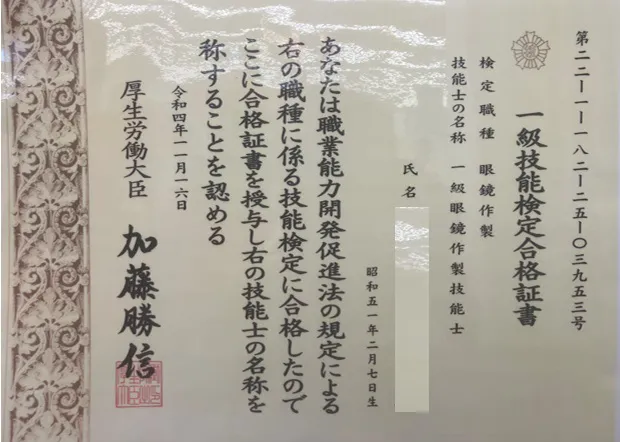 第二二―一―一八二―二五―〇三九五三号
一級技能検定合格証書
検定職種 眼鏡作製
技能士の名称 一級眼鏡作製技能士
氏名
昭和五一年二月七日生
あなたは職業能力開発促進法の規定による
右の職種に係る技能検定に合格したので
ここに合格証書を授与し右の技能士の名称を
称することを認める
令和四年一一月一六日
厚生労働大臣 加藤勝信